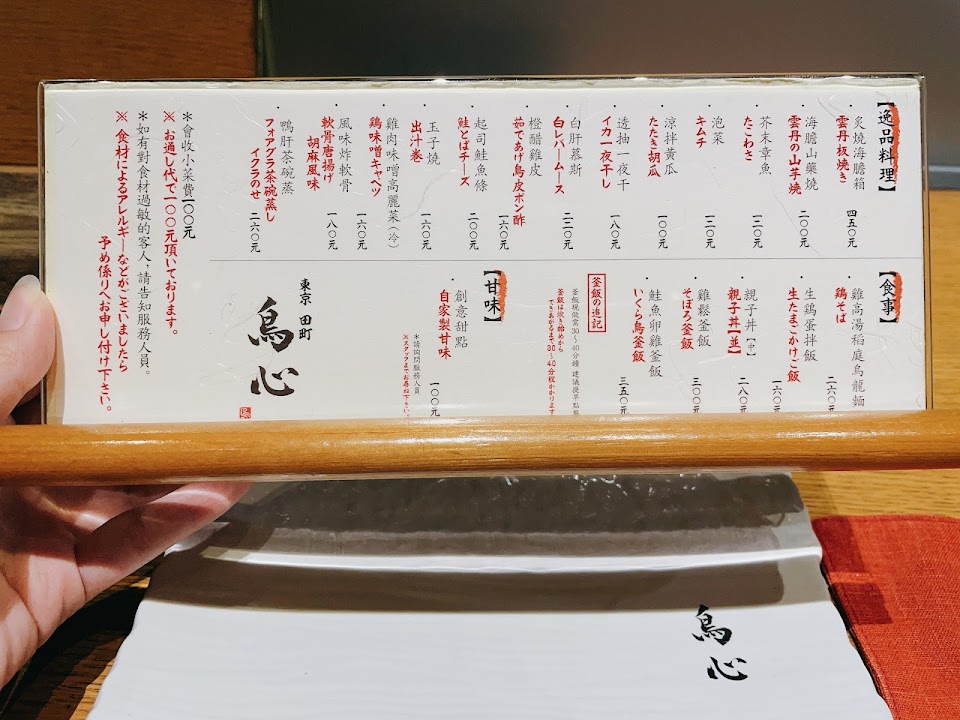 【逸品料理】
・炙燒海膽箱
雲丹板焼き
四五〇元
・海膽山藥燒
雲丹の山芋焼
二〇〇元
・芥末章魚
たこわさ
一二〇元
・泡菜
キムチ
一二〇元
・涼拌黄瓜
たたき胡瓜
一〇〇元
・透抽一夜干
イカ一夜干し
一八〇元
・白肝慕斯
白レバームース
二二〇元
・橙醋雞皮
茹であげ鳥皮ポン酢
一六〇元
・起司鮭魚條
鮭とばチーズ
二〇〇元
・玉子燒
出汁巻
一六〇元
・雞肉味噌高麗菜（冷）
鶏味噌キャベツ
一六〇元
・風味炸軟骨
軟骨唐揚げ
胡麻風味
一八〇元
・鴨肝茶碗蒸
フォアグラ茶碗蒸し
イクラのせ
二六〇元
【食事】
・雞高湯稻庭烏龍麵
鶏そば
二六〇元
・生鶏蛋拌飯
生たまごかけご飯
一六〇元
・親子丼【中】
親子丼【並】
二八〇元
・雞鬆釜飯
そぼろ釜飯
三〇〇元
・鮭魚卵雞釜飯
いくら鳥釜飯
三五〇元
釜飯の追記
釜飯現做需30～40分鐘 建議提早點餐
釜飯は炊き始めから
できあめるまで30～40分程かかります
【甘味】
・創意甜點
自家製甘味
一〇〇元
＊請詢問服務人員
※スタッフまでお尋ね下さい。
東京 田町
鳥心
＊會收小菜費一〇〇元
※お通し代で一〇〇元頂いております。
＊如有對食材過敏的客人，請告知服務人員。
※食材によるアレルギーなどがございましたら
予め係りへお申し付け下さい。
鳥心